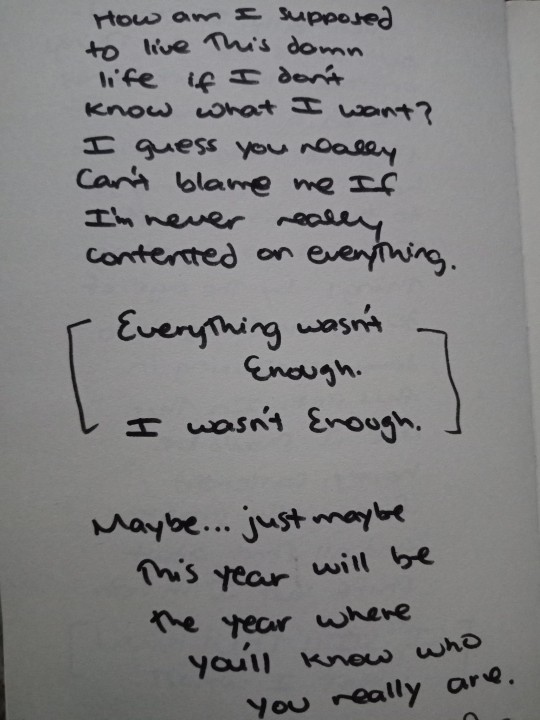 How am I supposed
to live this damn
life if I don't
know what I want?
I guess you really
can't blame me If
I'm never really
contented on everything.
Everything wasn't
Enough.
I wasn't Enough.
Maybe... just maybe
this year will be
the year where
you'll know who
you really are.